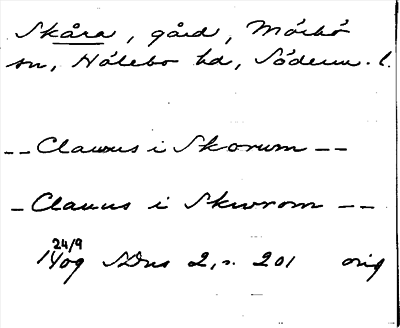 Skåra, gård, Mörkö
sn, Hölebo hd, Söderm. l.
-- Clawus i Skorum --
- Clauus i Skwrom --
24/9
1409 SDns 2, s. 201 orig